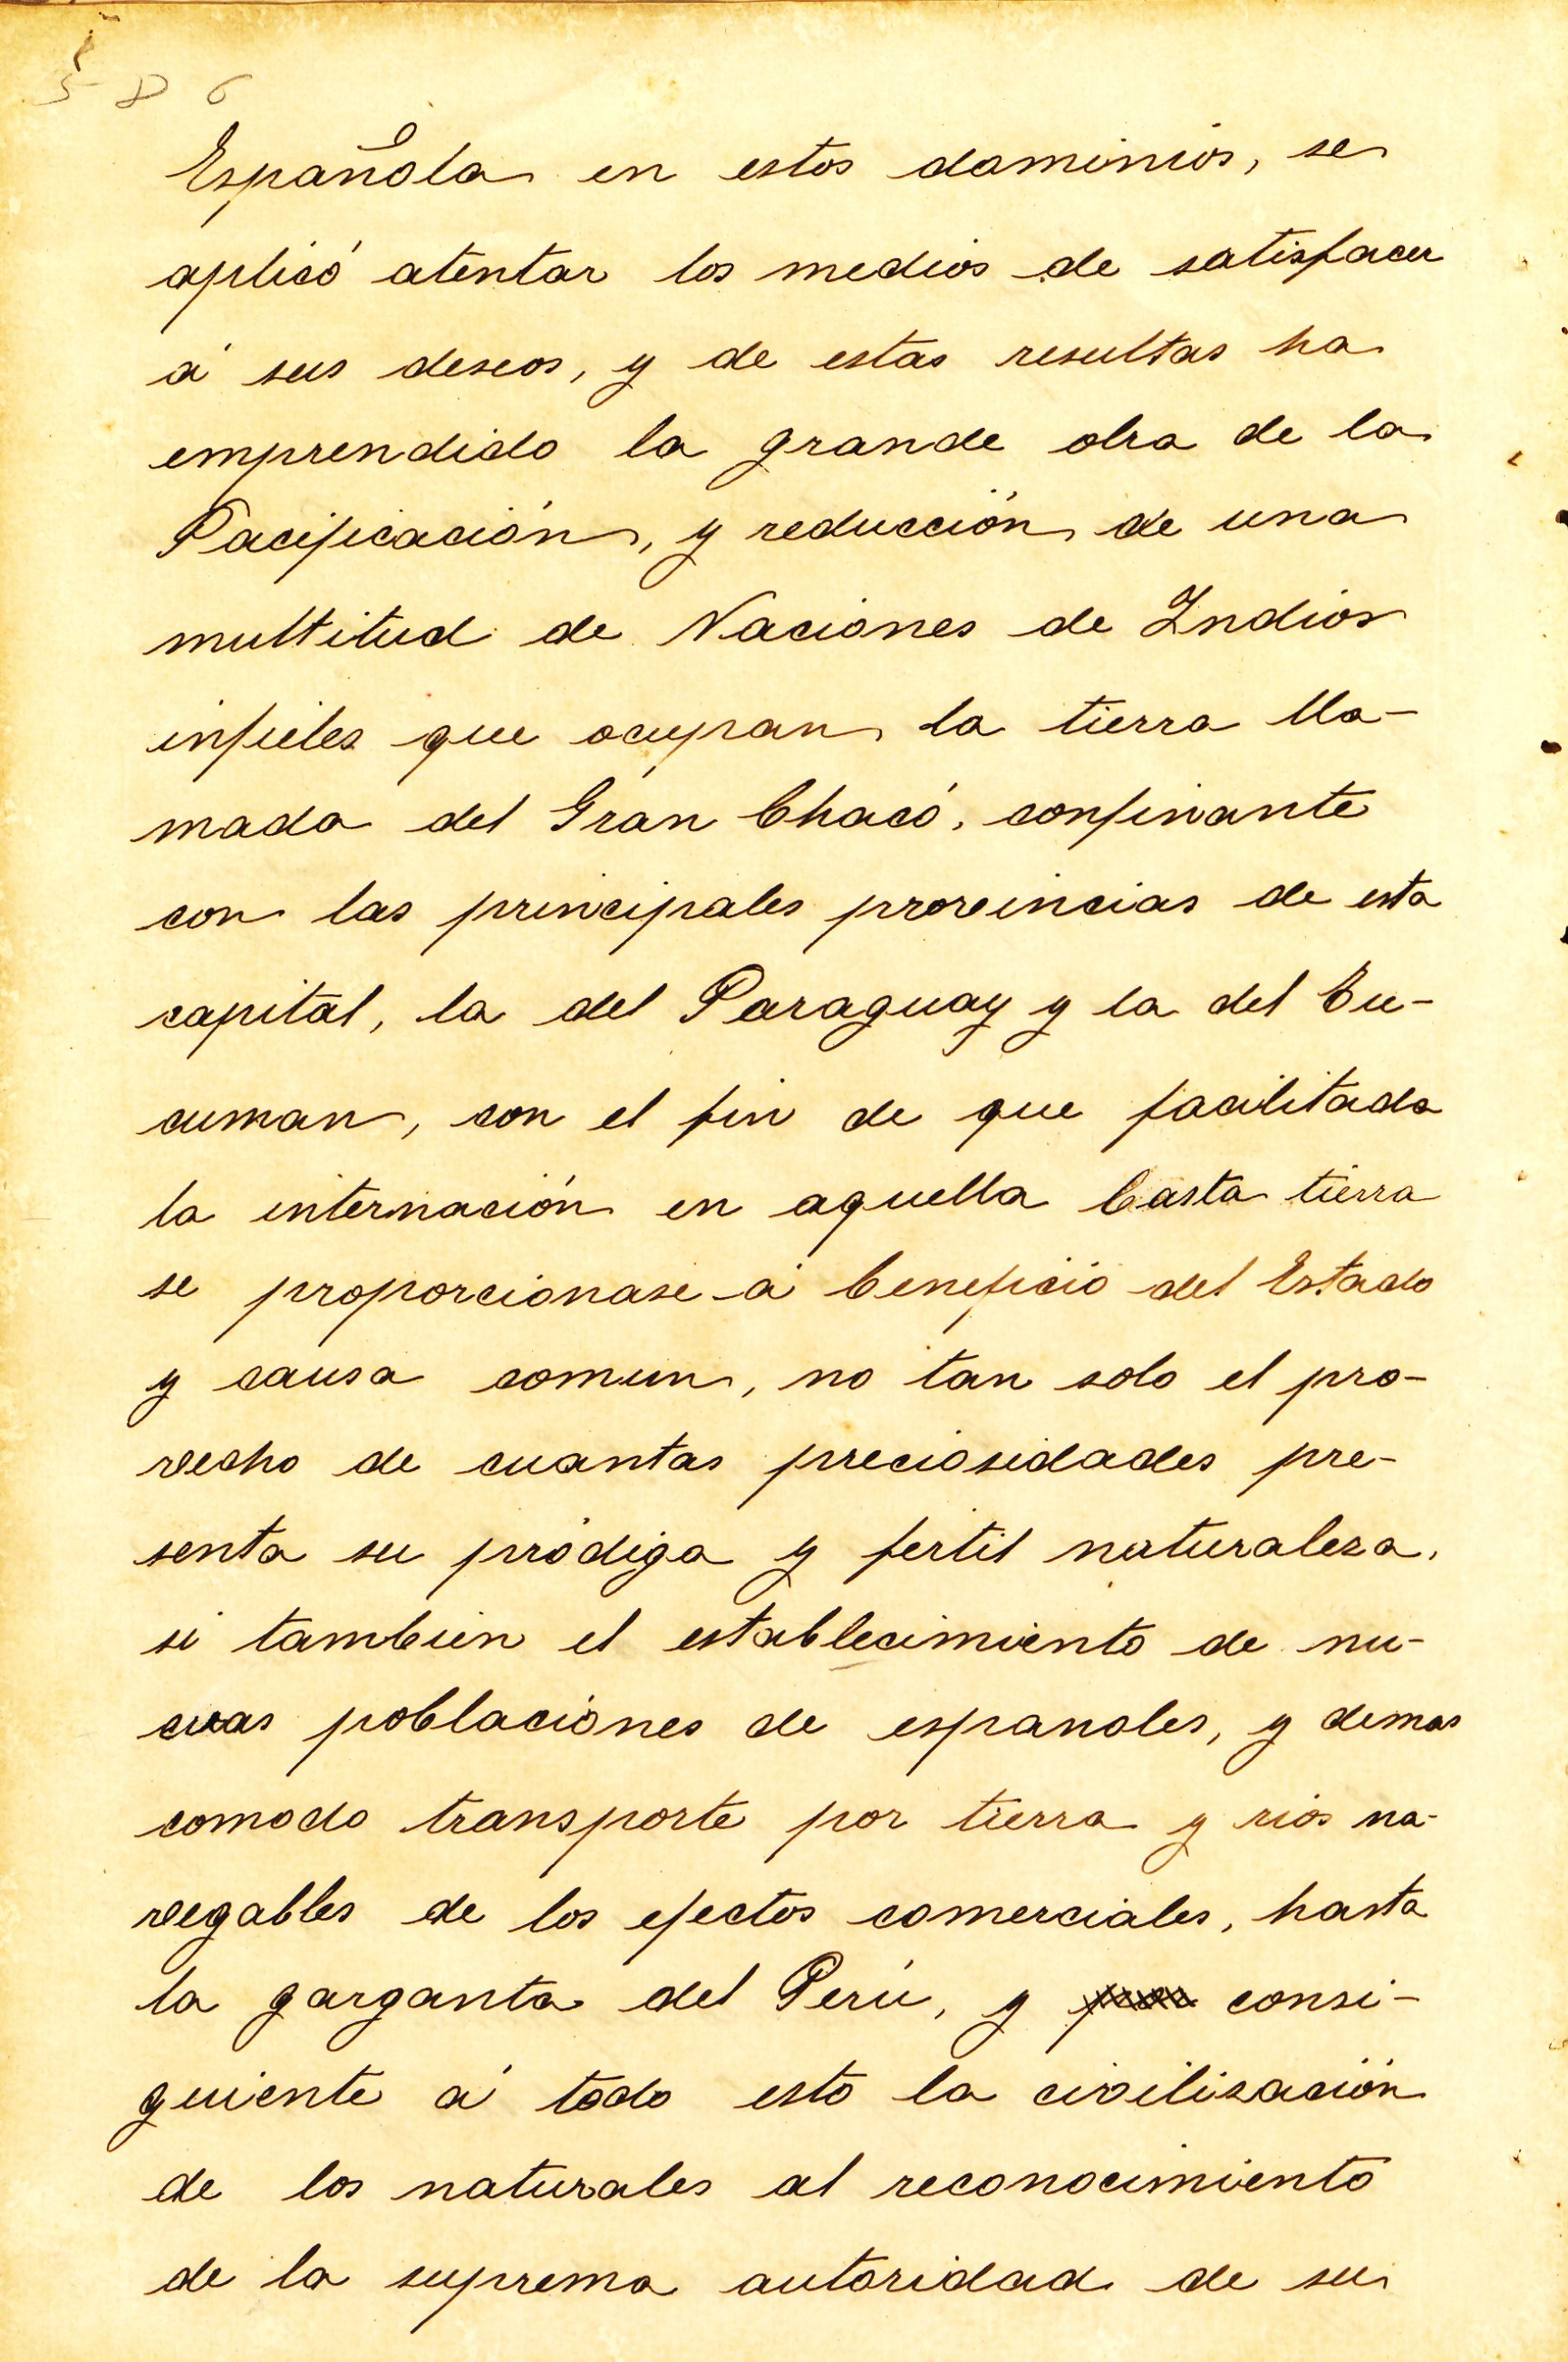 5 D 6
Española en estos dominios, se
aplicó atentar los medios de satisfacer
á sus deseos, y de estas resultas ha
emprendido la grande obra de la
Pacificación, y reducción de una
multitud de Naciones de Indios
infieles que ocupan la tierra lla-
mada del Gran Chacó, confinante
con las principales provincias de esta
capital, la del Paraguay y la del Tu-
cuman, con el fin de que facilitada
la internación en aquella basta tierra
se proporcionase á beneficio del Estado
y causa comun, no tan solo el pro-
vecho de cuantas preciosidades pre-
senta su pródiga y fertil naturaleza,
si tambien el establecimiento de nu-
evas poblaciones de espanoles, y demas
comodo transporte por tierra y rios na-
vegables de los efectos comerciales, hasta
la garganta del Perú, y consi-
guiente á todo esto la civilización
de los naturales al reconocimiento
de la suprema autoridad de su